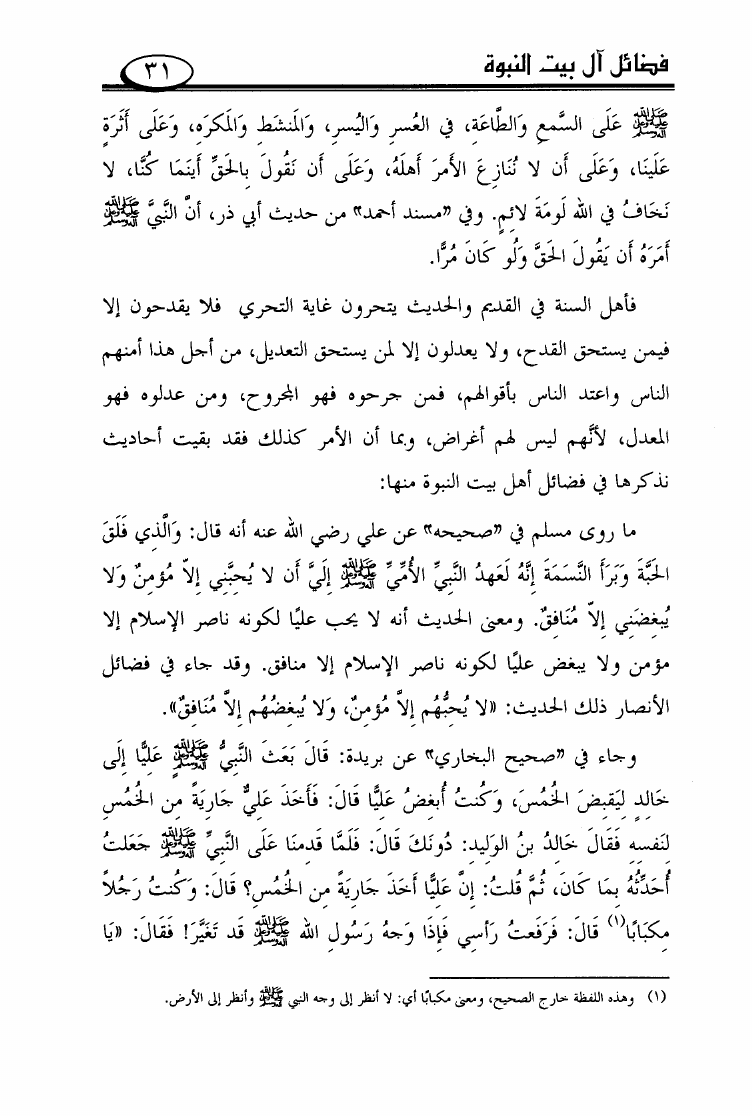 فضائل آل بيت النبوة
٣١
ﷺ عَلَى السَّمعِ وَالطَّاعَةِ، في العُسرِ وَاليُسرِ، وَالمَنشَطِ وَالمَكرَهِ، وَعَلَى أَثَرَةٍ
عَلَينَا، وَعَلَى أَن لا نُنَازِعَ الأَمرَ أَهلَهُ، وَعَلَى أَن نَقُولَ بِالحَقِّ أَينَمَا كُنَّا، لا
نَخَافُ في الله لَومَةَ لائِمٍ. وفي «مسند أحمد» من حديث أبي ذر، أنَّ النَّبِيَّ ﷺ
أَمَرَهُ أَن يَقُولَ الحَقَّ وَلَو كَانَ مُرًّا.
فأهل السنة في القديم والحديث يتحرون غاية التحري فلا يقدحون إلا
فيمن يستحق القدح، ولا يعدلون إلا لمن يستحق التعديل، من أجل هذا أمنهم
الناس واعتد الناس بأقوالهم، فمن جرحوه فهو المجروح، ومن عدلوه فهو
المعدل، لأنَّهم ليس لهم أغراض، وبما أن الأمر كذلك فقد بقيت أحاديث
نذكرها في فضائل أهل بيت النبوة منها:
ما روى مسلم في «صحيحه» عن علي رضي الله عنه أنه قال: وَالَّذي فَلَقَ
الحَبَّةَ وَبَرَأَ النَّسَمَةَ إِنَّه لَعَهدُ النَّبِيِّ الأُمِّيِّ ﷺ إِلَيَّ أَن لا يُحِبَّنِي إِلاَّ مُؤمِنٌ وَلا
يُبغِضَنِي إِلاَّ مُنَافِقٌ. ومعنى الحديث أنه لا يحب عليًا لكونه ناصر الإسلام إلا
مؤمن ولا يبغض عليًا لكونه ناصر الإسلام إلا منافق. وقد جاء في فضائل
الأنصار ذلك الحديث: «لا يُحِبُّهُم إِلاَّ مُؤمِنٌ، وَلا يُبغِضُهُم إِلاَّ مُنَافِقٌ».
وجاء في «صحيح البخاري» عن بريدة: قَالَ بَعَثَ النَّبِيُّ ﷺ عَلِيًّا إِلَى
خَالِدٍ لِيَقبِضَ الخُمُسَ، وَكُنتُ أُبغِضُ عَلِيًّا قَالَ: فَأَخَذَ عَلِيٌّ جَارِيَةً مِن الخُمُسِ
لِنَفسِهِ فَقَالَ خَالِدُ بنُ الوَلِيدِ: دُونَكَ قَالَ: فَلَمَّا قَدِمنَا عَلَى النَّبِيِّ ﷺ جَعَلتُ
أُحَدِّثُهُ بِمَا كَانَ، ثُمَّ قُلتُ: إِنَّ عَلِيًّا أَخَذَ جَارِيَةً مِن الخُمُسِ؟ قَالَ: وَكُنتُ رَجُلاً
مِكبَابًا(١) قَالَ: فَرَفَعتُ رَأسِي فَإِذَا وَجهُ رَسُولِ الله ﷺ قَد تَغَيَّرَ! فَقَالَ: «يَا
(١) وهذه اللفظة خارج الصحيح، ومعنى مكبابًا أي: لا أنظر إلى وجه النبي ﷺ وأنظر إلى الأرض.